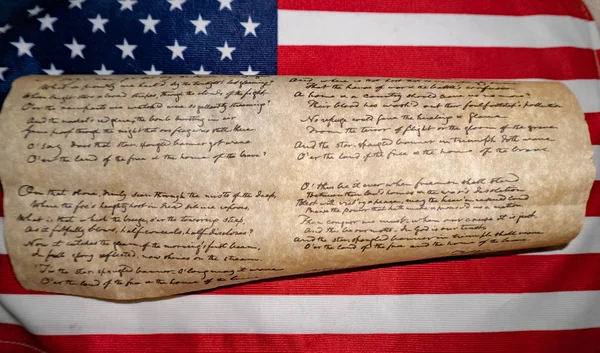 O'er the ramparts we watched were so gallantly streaming?
And the rocket's red glare, the bomb bursting in air
Gave proof through the night that our flag was still there
O! say does that star spangled banner yet wave
O'er the land of the free & the home of the brave?
On that shore, dimly seen through the mists of the deep,
Where the foe's haughty host in dread silence reposes,
What is that which the breeze, o'er the towering steep,
As it fitfully blows, half conceals, half discloses?
Now it catches the gleam of the morning's first beam,
In full glory reflected, now shines on the stream.
'Tis the star spangled banner, O! long may it wave
O'er the land of the free & the home of the
And where is
That the havoc of war
A home & a country should
Their blood has wash'd out their foul footstep's pollution
No refuge could save the hireling & slave
From the terror of flight or the gloom of the grave
And the star spangled banner in triumph doth wave
O'er the land of the free & the home of the brave
O! thus be it ever when freemen shall stand
Between their lov'd homes & the war's desolation
Blest with vict'ry & peace may the heav'n rescued land
Praise the power that hath made & preserved us a nation
Then conquer we must, when our cause it is just
And this be our motto: In God is our trust
And the star spangled banner in triumph shall wave
O'er the land of the free and the home of the brave